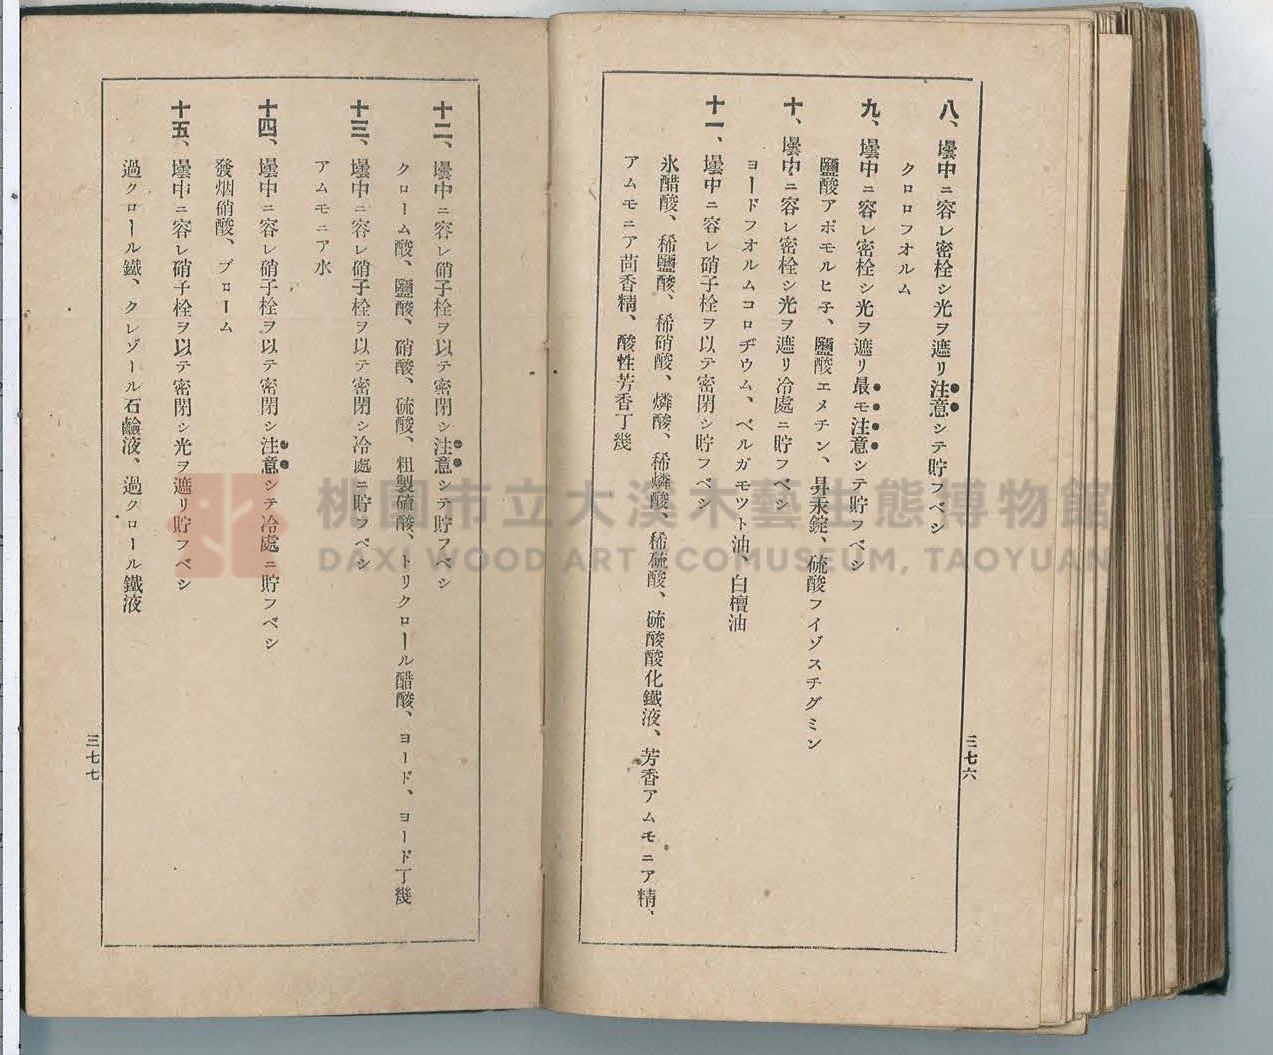 八、壜中ニ容レ密栓シ光ヲ遮リ注意シテ貯フベシ
クロロフオルム
九、壜中ニ容レ密栓シ光ヲ遮リ最モ注意シテ貯フベシ
鹽酸アポモルヒ子、鹽酸エメチン、昇汞錠、硫酸フイゾスチグミン
十、壜中ニ容レ密栓シ光ヲ遮リ冷處ニ貯フベシ
ヨードフオルムコロヂウム、ベルガモツト油、白檀油
十一、壜中ニ容レ硝子栓ヲ以テ密閉シ貯フベシ
氷醋酸、稀鹽酸、稀硝酸、燐酸、稀燐酸、稀硫酸、硫酸酸化鐵液、芳香アムモニア精、
アムモニア茴香精、酸性芳香丁幾
三七六
十二、壜中ニ容レ硝子栓ヲ以テ密閉シ注意シテ貯フベシ
クローム酸、鹽酸、硝酸、硫酸、粗製硫酸、トリクロール醋酸、ヨード、ヨード丁幾
十三、壜中ニ容レ硝子栓ヲ以テ密閉シ冷處ニ貯フベシ
アムモニア水
十四、壜中ニ容レ硝子栓ヲ以テ密閉シ注意シテ冷處ニ貯フベシ
發烟硝酸、ブローム
十五、壜中ニ容レ硝子栓ヲ以テ密閉シ光ヲ遮リ貯フベシ
過クロール鐵、クレゾール石鹼液、過クロール鐵液
三七七
桃園市立大溪木藝生態博物館
DAXI WOOD ART ECOMUSEUM, TAOYUAN